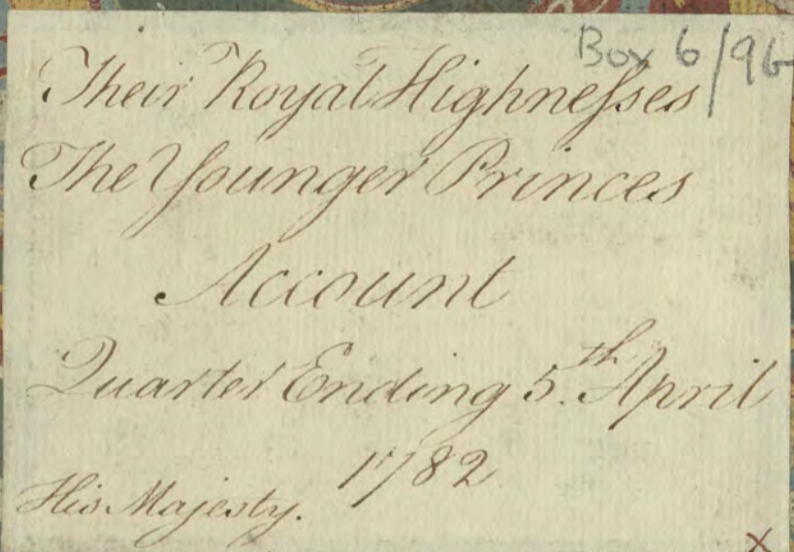 Box 6/96
Their Royal Highneſses
The Younger Princes
Account
Quarter Ending 5.th April
1782
His Majesty.
X